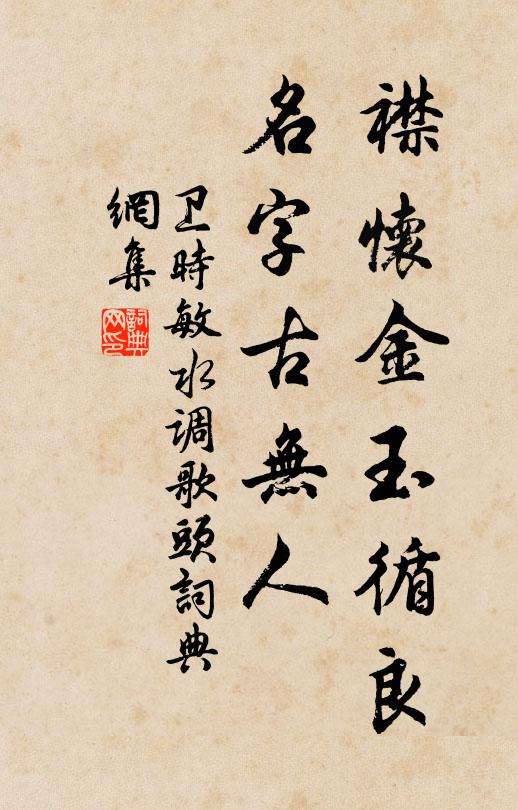 襟懷金玉循良
名字古無人
卫時敏水调歌頭詞典
網集
詞典
网印